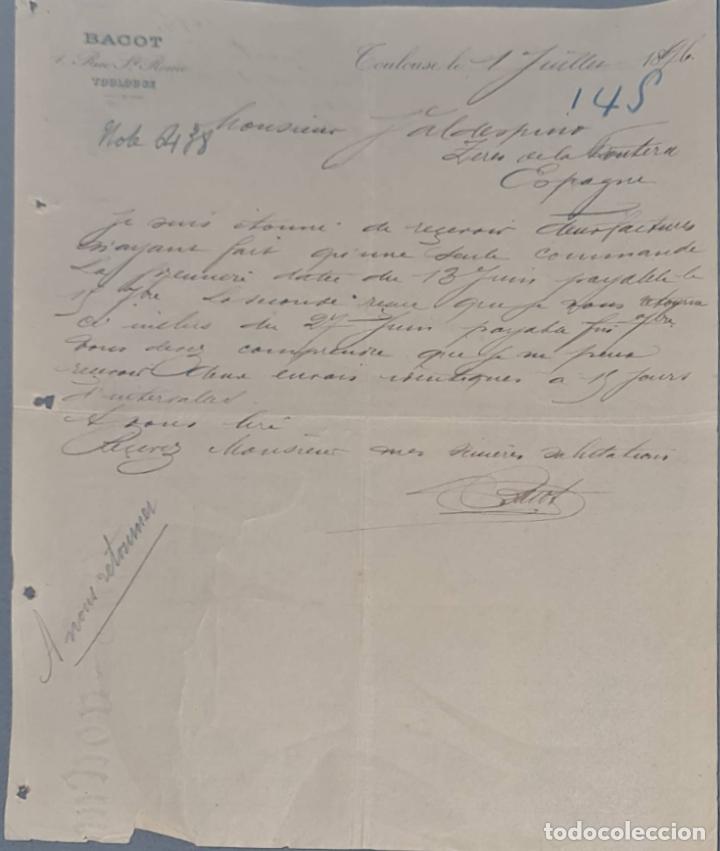 BACOT
1. Rue St Rome
TOULOUSE
Toulouse le 1 Juillet 1896
145
Note 2438
Monsieur Valdespino
Zeres de la Frontera
Espagne
Je suis étonné de recevoir deux factures
n'ayant fait qu'une seule commande
La première datée du 13 Juin payable le
15 7bre La seconde reçue que je vous retourne
ci inclus du 27 Juin payable fin 7bre
Vous devez comprendre que je ne peux
recevoir deux envois identiques à 15 jours
d'intervalles
A vous lire
Recevez Monsieur mes sincères salutations
Bacot
A nous retourner
todocoleccion